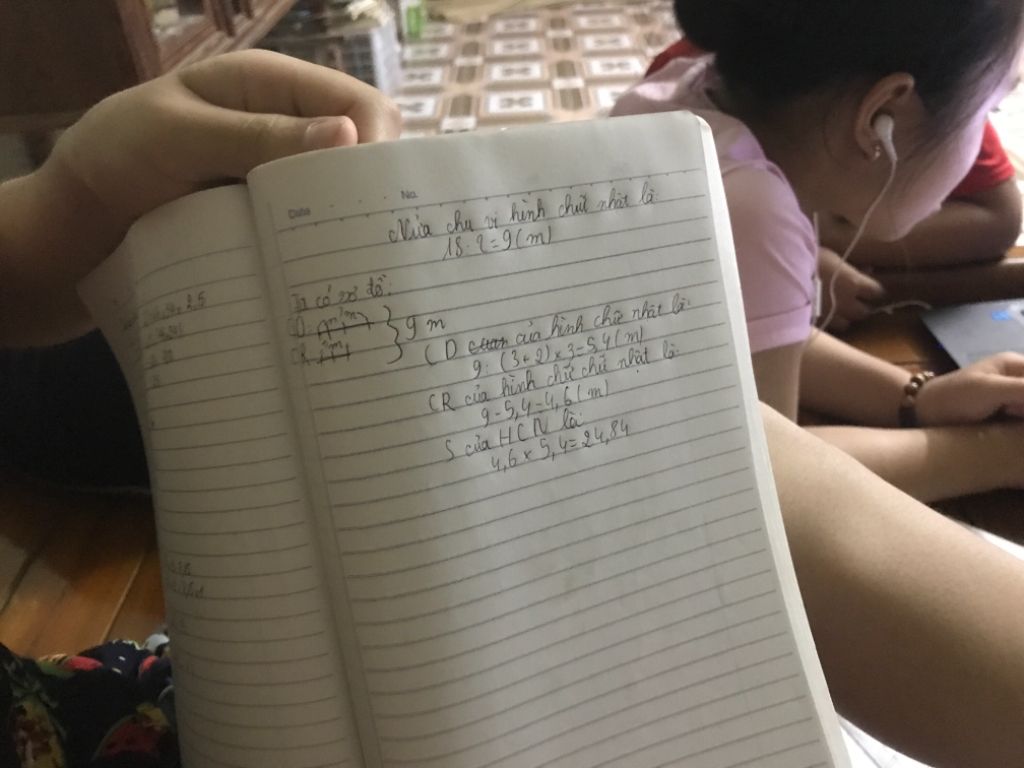 Date No.
Nửa chu vi hình chữ nhật là
18: 2 = 9 (m)
Ta có sơ đồ:
9 m
CD của hình chữ nhật là:
9: (3+2) × 3 = 5,4 (m)
CR của hình chữ chữ nhật là:
9 - 5,4 = 4,6 (m)
S của HCN là:
4,6 × 5,4 = 24,84